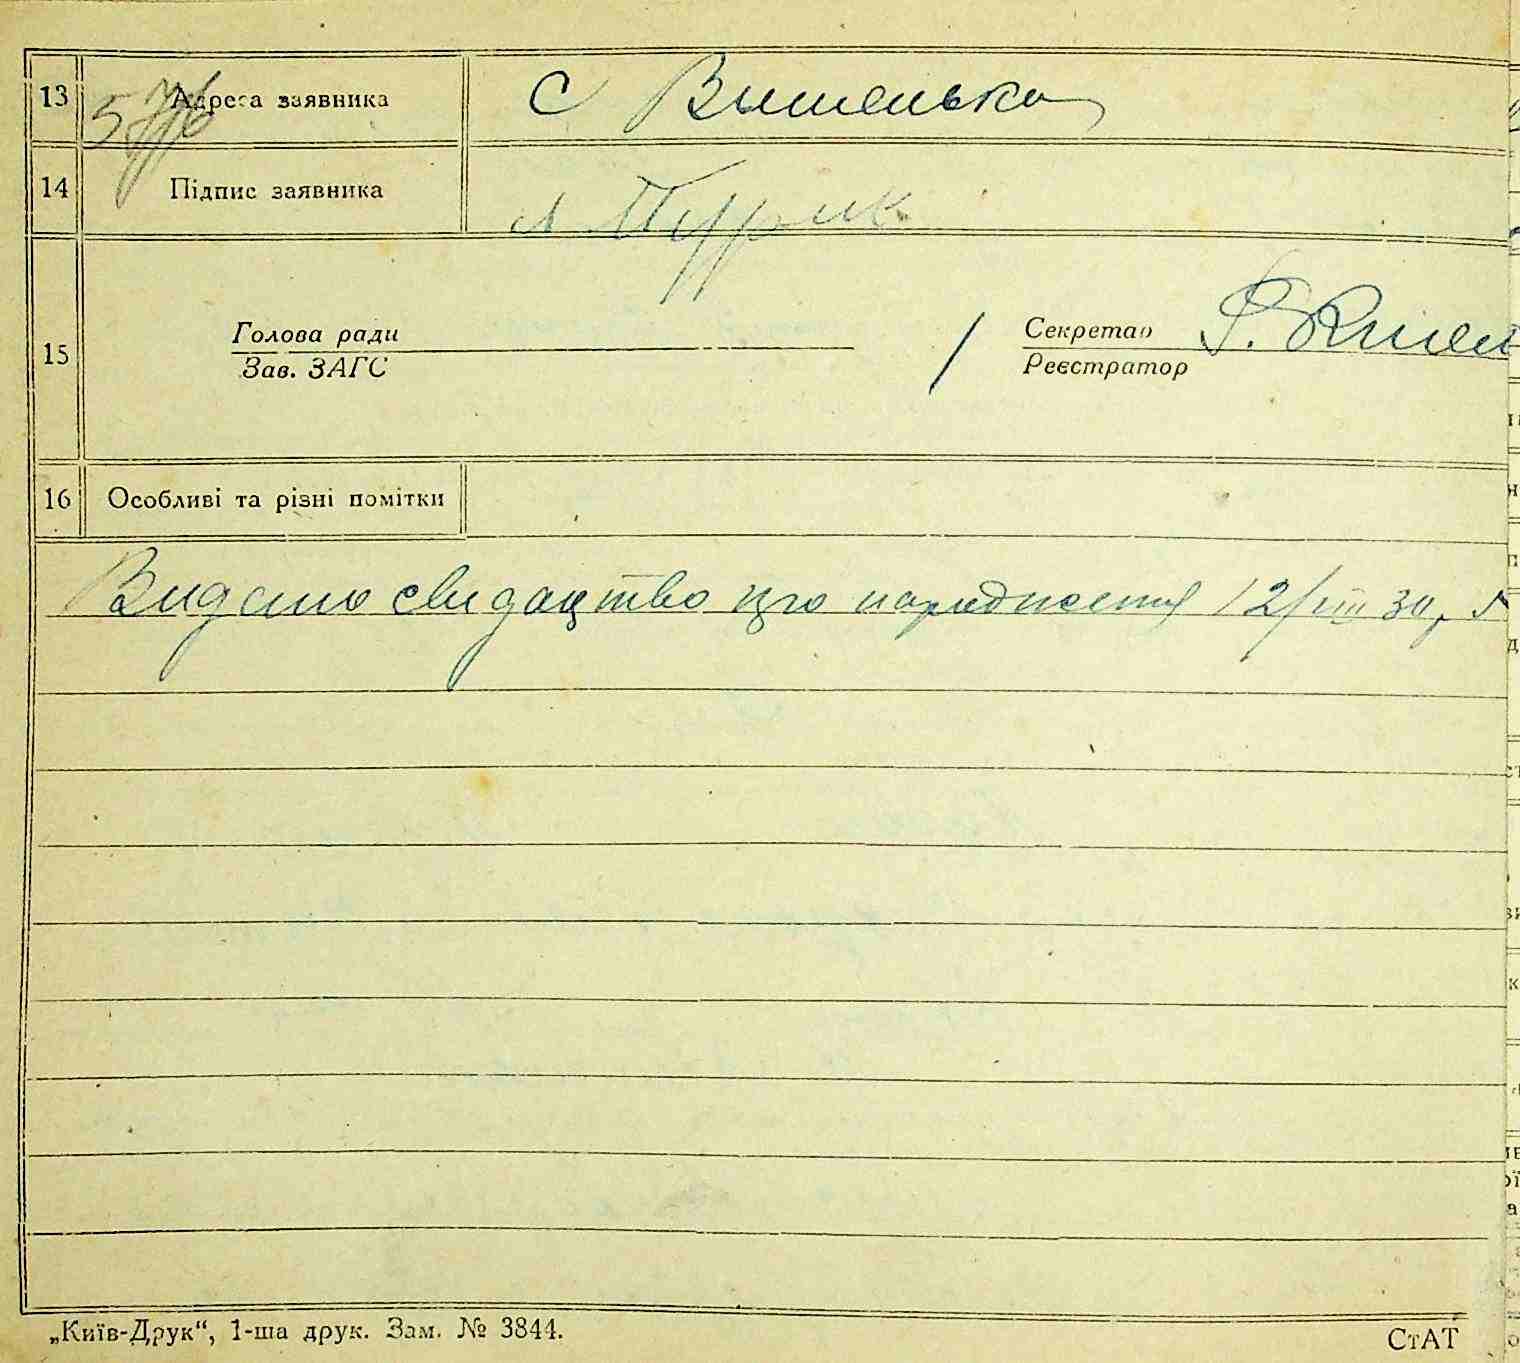 13 Адреса заявника С Вышенька
14 Підпис заявника
15 Голова ради Секретар
Зав. ЗАГС Реєстратор
16 Особливі та різні помітки
Видано свидацтво про народження 12/VIII 30 р
„Київ-Друк“, 1-ша друк. Зам. № 3844.
СтАТ